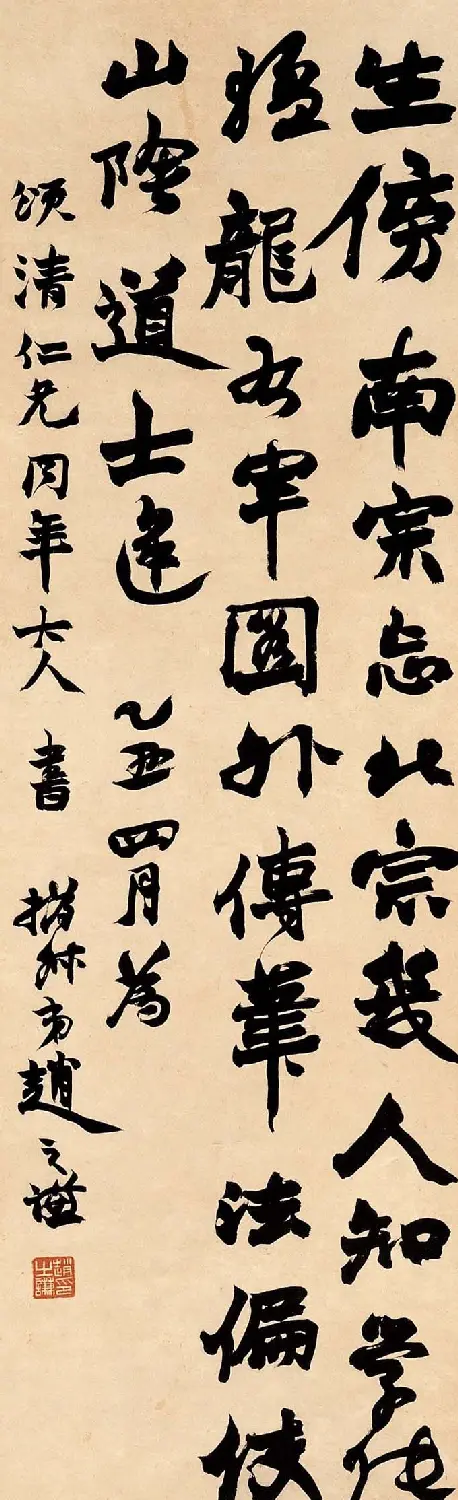 生傍南宗忘北宗幾人知學化
龍右軍外傳筆法偏使
山陰道士逢 乙丑四月為
頌清仁兄同年大人 書 撝叔弟趙之謙
趙之謙印